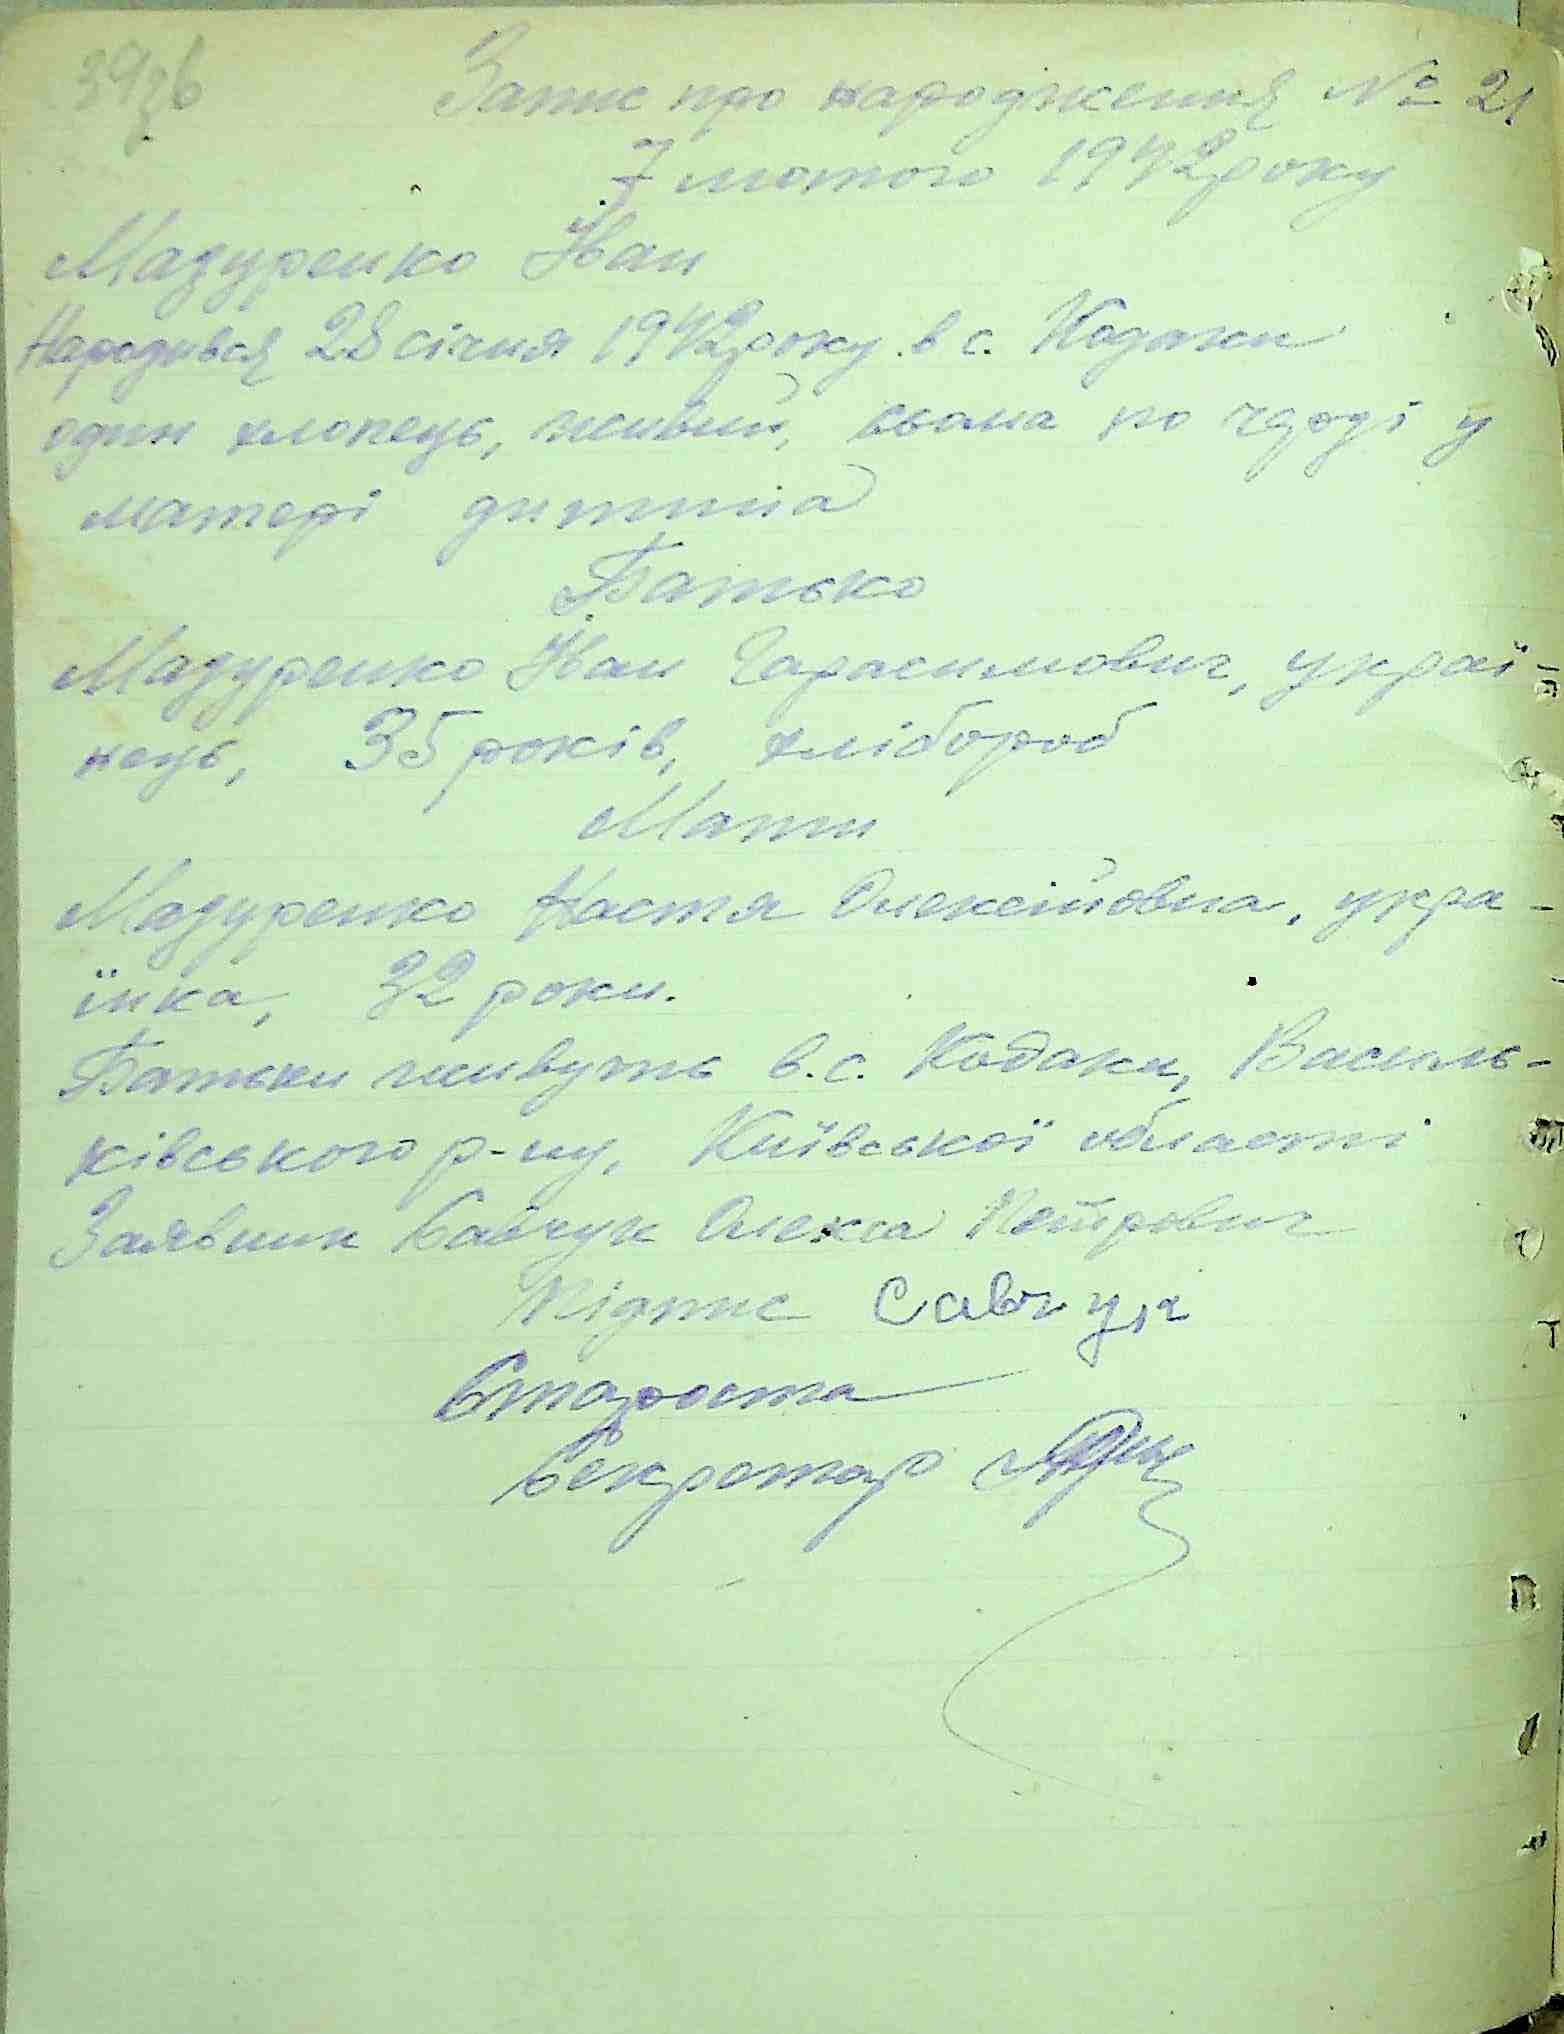 Запис про народження № 21
7 лютого 1942 року
Мазуренко Іван
Народився 28 січня 1942 року в с. Кодаки
один хлопець, живий, сьома по черзі у
матері дитина
Батько
Мазуренко Іван Гарасимович, украї-
нець, 35 років, хлібороб
Мати
Мазуренко Настя Олексіївна, укра-
їнка, 32 роки.
Батьки живуть в с. Кодаки, Василь-
ківського р-ну, Київської області
Заявник Савчук Олекса Петрович
Підпис Савчук
Староста
Секретар